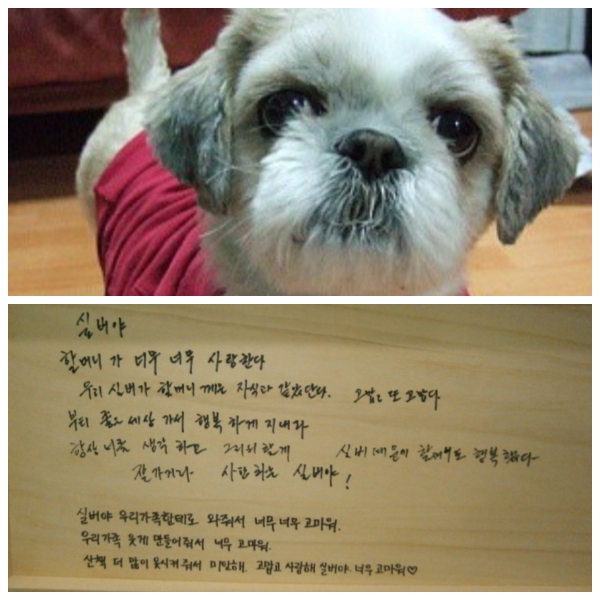 실버야
할머니가 너무 너무 사랑한다
우리 실버가 할머니께는 자식과 같았단다. 고맙고 또 고맙다
부디 좋은 세상 가서 행복하게 지내라
항상 너를 생각하고 그리워할게 실버 때문에 할머니도 행복했다
잘가거라 사랑하는 실버야!
실버야 우리가족한테로 와줘서 너무너무 고마워.
우리가족 웃게 만들어줘서 너무 고마워.
산책 더 많이 못시켜줘서 미안해. 고맙고 사랑해 실버야. 너무 고마워♡